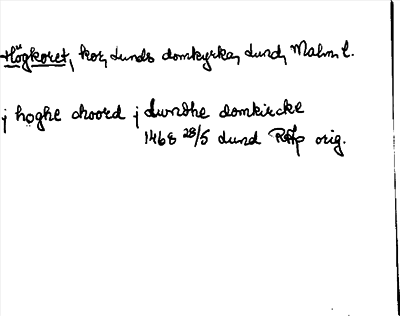 Högkoret, kor, Lunds domkyrka, Lund, Malm. l.
j høghe choord j Lundhe domkircke
1468 28/5 Lund RAp orig.